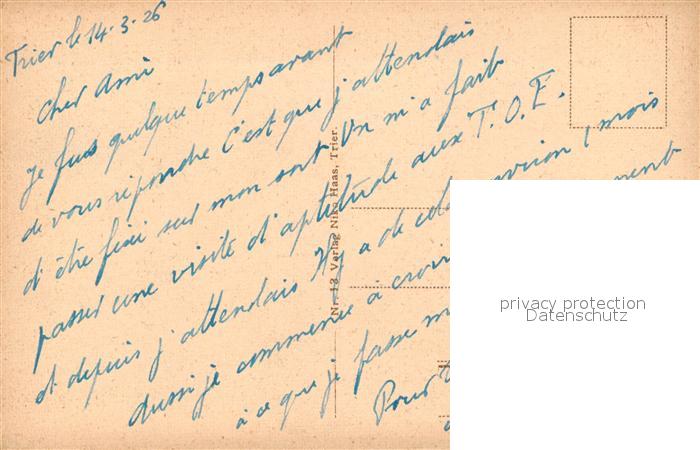 Trier le 14-3-26
Cher Ami
Je fus quelque temps avant
de vous répondre C'est que j'attendais
d'être fixé sur mon sort On m'a fait
passer une visite d'aptitude aux T.O.E.
et depuis j'attendais Il y a de cela environ 1 mois
Aussi je commence à croi
à ce que je fasse m
Pour
Nr. 13 Verlag Niko Haas, Trier.
privacy protection
Datenschutz